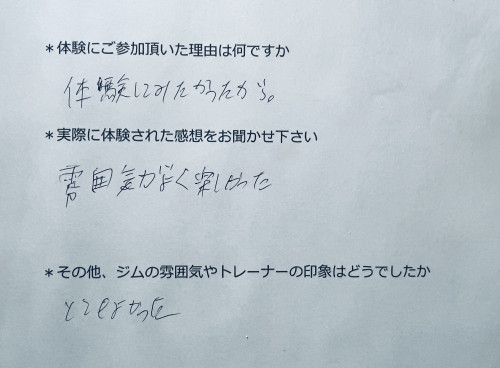 *体験にご参加頂いた理由は何ですか
体験してみたかったから。
*実際に体験された感想をお聞かせ下さい
雰囲気がよく楽しかった
*その他、ジムの雰囲気やトレーナーの印象はどうでしたか
とてもよかった